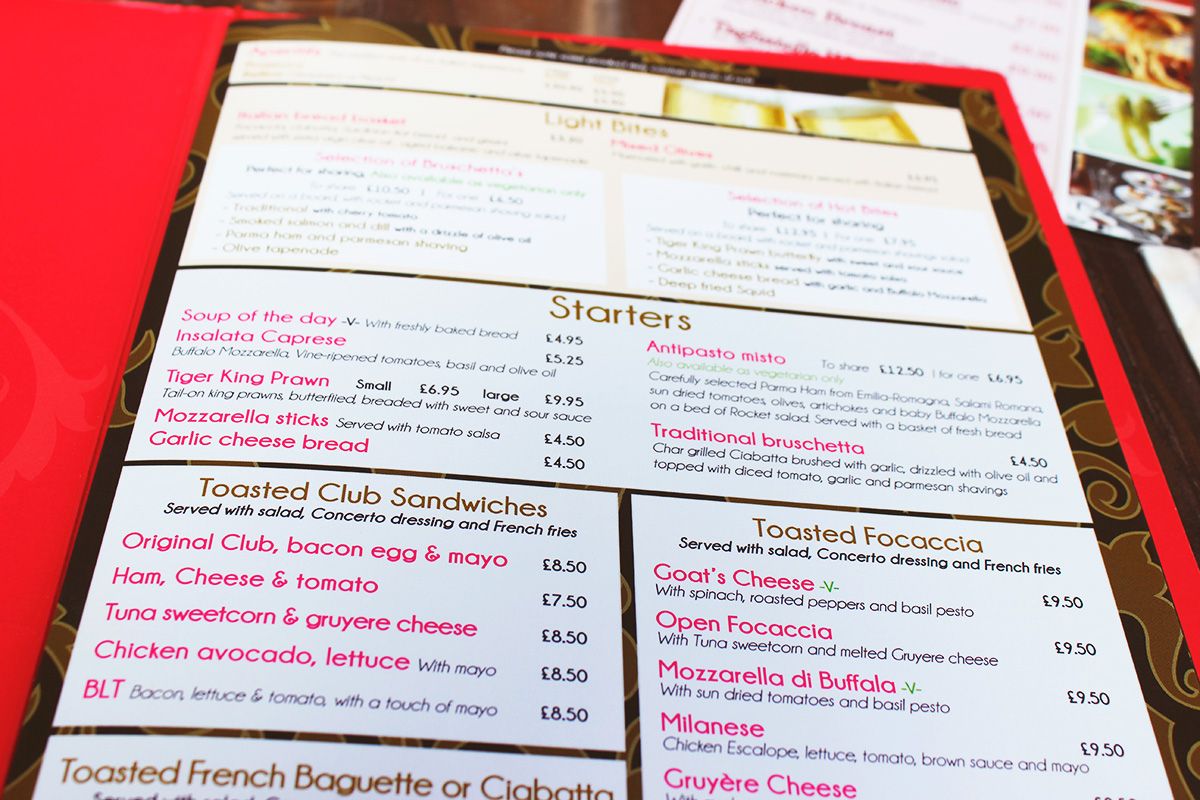 Light Bites
Italian bread basket
Mixed Olives
£6.95
Selection of Bruschetta's
Perfect for sharing, Also available as vegetarian only
To share £10.50 | For one £6.50
Served on a board, with rocket and parmesan shaving salad
- Traditional with cherry tomato
- Smoked salmon and dill with a drizzle of olive oil
- Parma ham and parmesan shaving
- Olive tapenade
Selection of Hot Bites
Perfect for sharing
To share £12.95 | For one £7.95
Served on a board, with rocket and parmesan shavings salad
- Tiger King Prawn butterfly with sweet and sour sauce
- Mozzarella sticks served with tomato salsa
- Garlic cheese bread with garlic and Buffalo Mozzarella
- Deep fried Squid
Starters
Soup of the day -V- With freshly baked bread £4.95
Insalata Caprese £5.25
Buffalo Mozzarella, Vine-ripened tomatoes, basil and olive oil
Tiger King Prawn Small £6.95 large £9.95
Tail-on king prawns, butterflied, breaded with sweet and sour sauce
Mozzarella sticks Served with tomato salsa £4.50
Garlic cheese bread £4.50
Antipasto misto To share £12.50 | for one £6.95
Also available as vegetarian only
Carefully selected Parma Ham from Emilia-Romagna, Salami Romana,
sun dried tomatoes, olives, artichokes and baby Buffalo Mozzarella
on a bed of Rocket salad. Served with a basket of fresh bread
Traditional bruschetta £4.50
Char grilled Ciabatta brushed with garlic, drizzled with olive oil and
topped with diced tomato, garlic and parmesan shavings
Toasted Club Sandwiches
Served with salad, Concerto dressing and French fries
Original Club, bacon egg & mayo £8.50
Ham, Cheese & tomato £7.50
Tuna sweetcorn & gruyere cheese £8.50
Chicken avocado, lettuce With mayo £8.50
BLT Bacon, lettuce & tomato, with a touch of mayo £8.50
Toasted French Baguette or Ciabatta
Toasted Focaccia
Served with salad, Concerto dressing and French fries
Goat's Cheese -V- £9.50
With spinach, roasted peppers and basil pesto
Open Focaccia £9.50
With Tuna sweetcorn and melted Gruyere cheese
Mozzarella di Buffala -V- £9.50
With sun dried tomatoes and basil pesto
Milanese £9.50
Chicken Escalope, lettuce, tomato, brown sauce and mayo
Gruyère Cheese